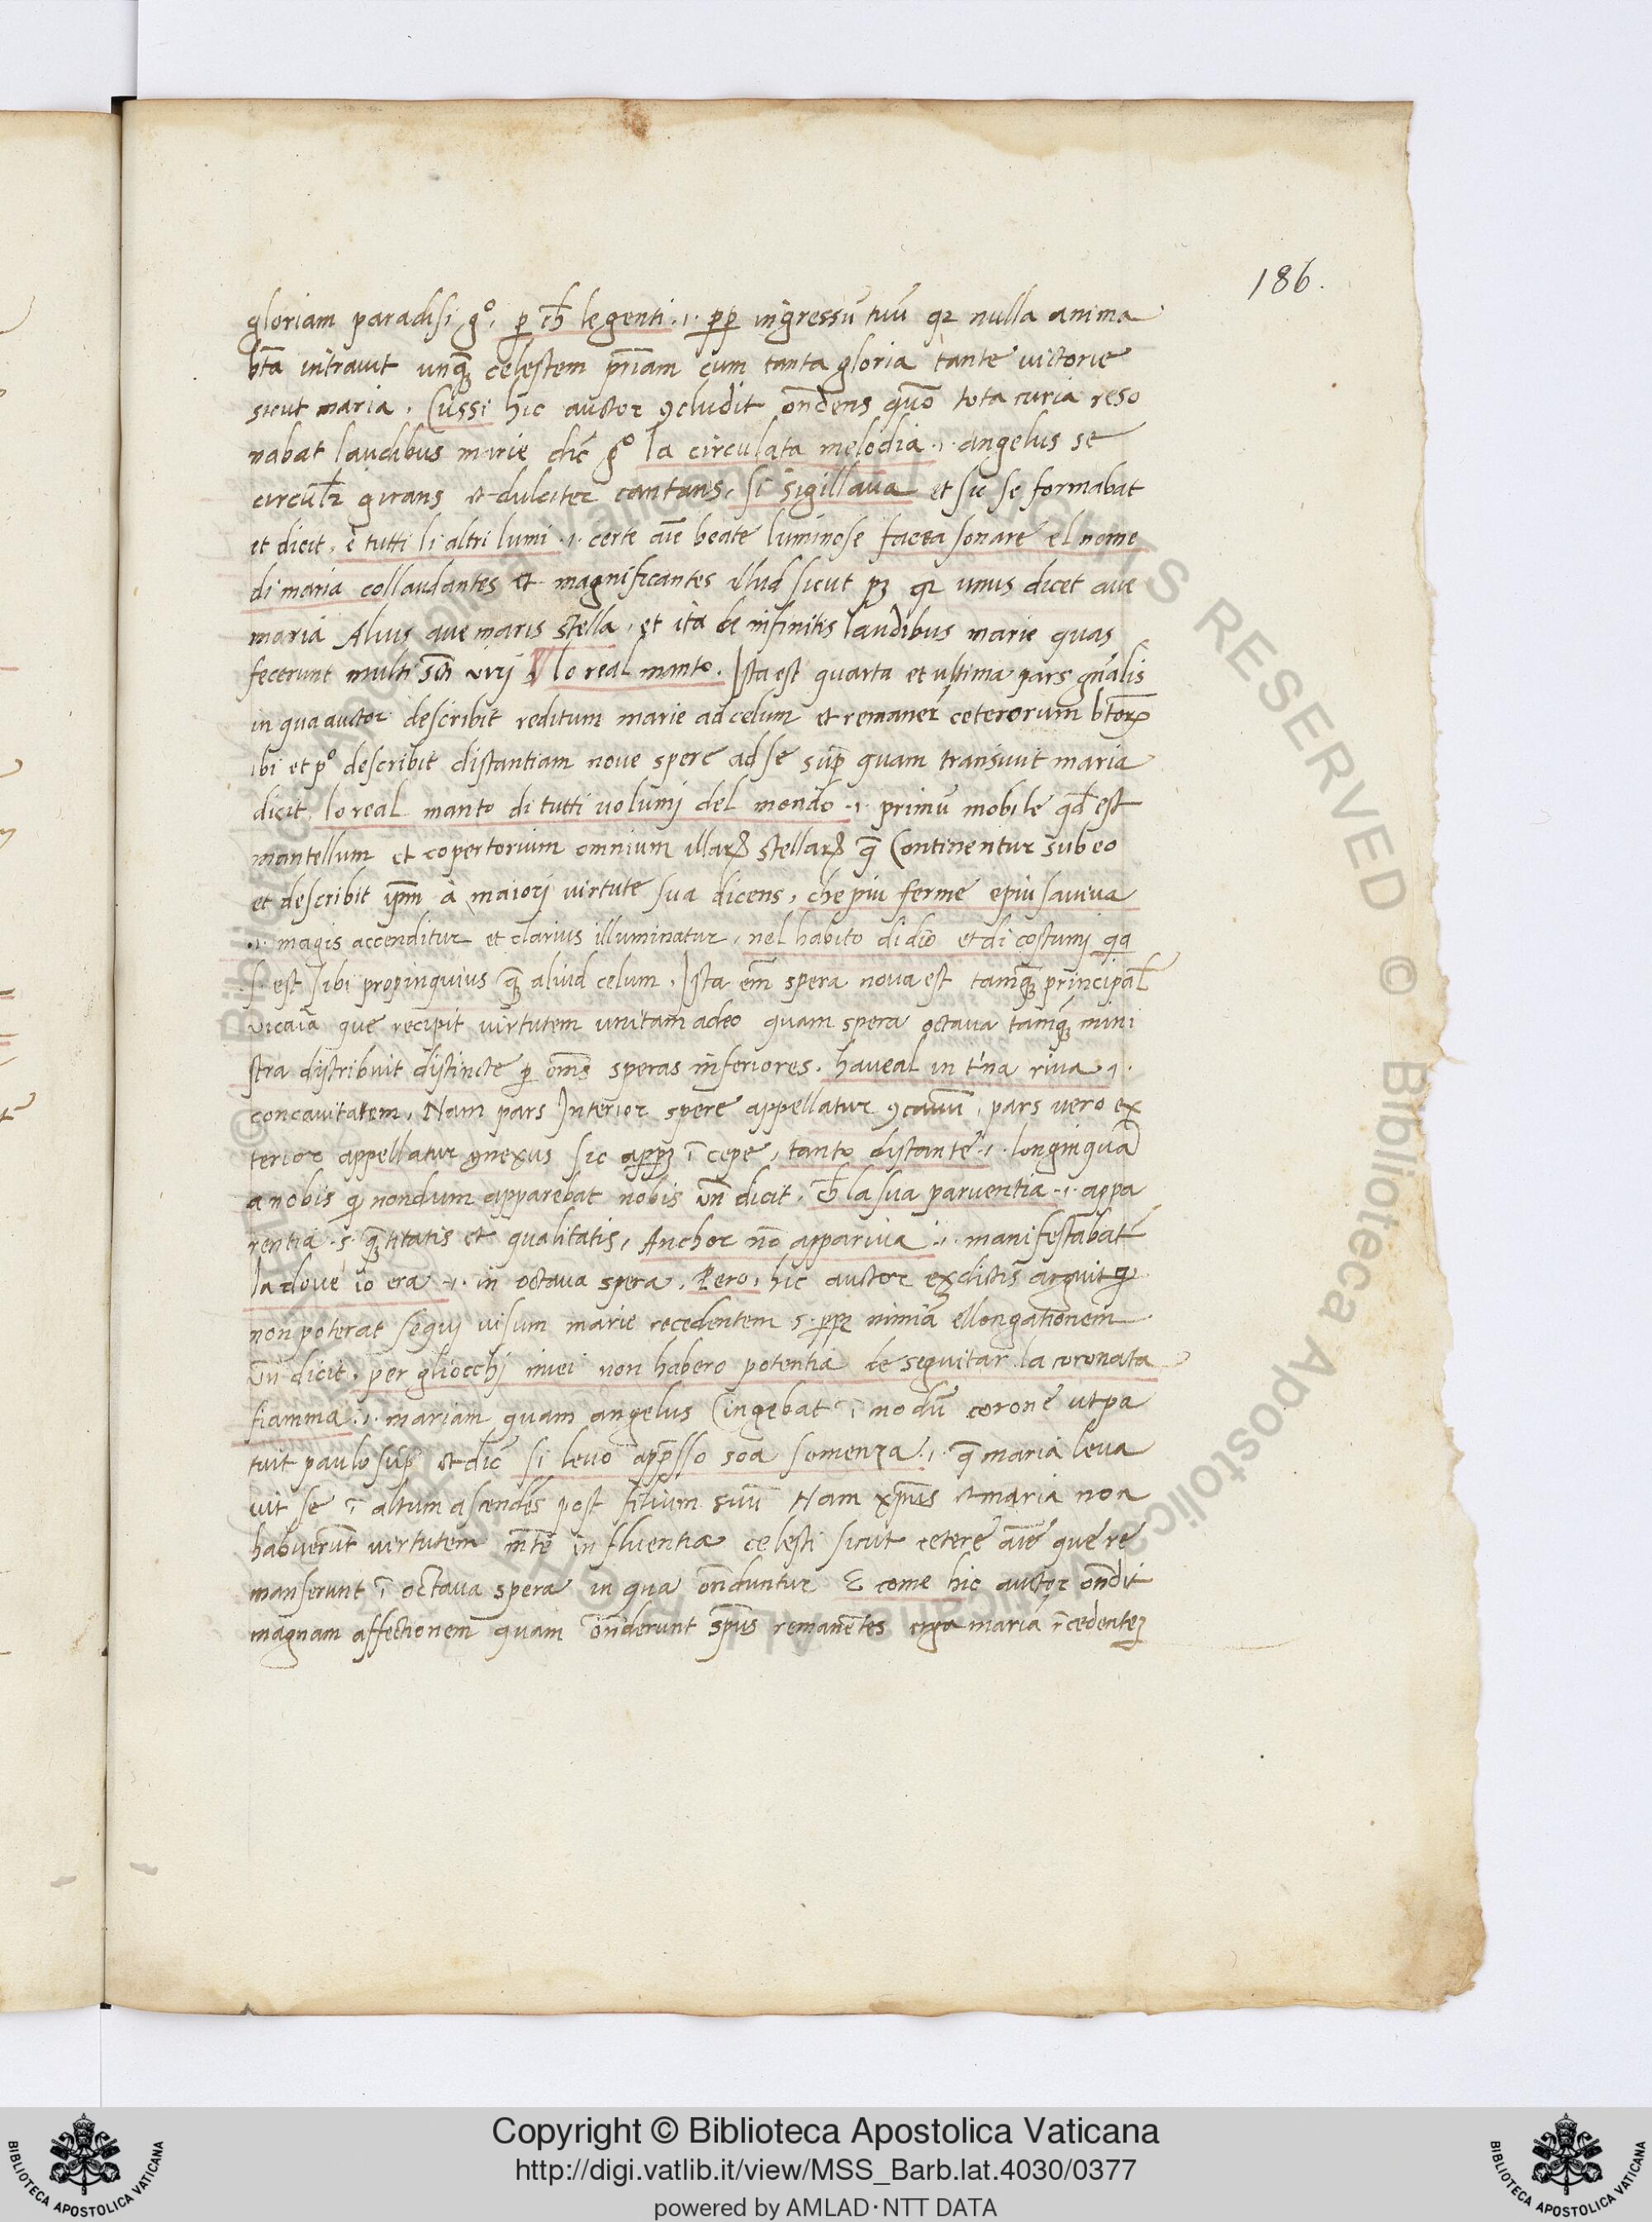 186.
gloriam paradisi gº. ꝑ ch̄ le genti .ı. ꝓp̄ ingressū tuū qꝛ nulla anima
bt̄a intravit unqꝫ celestem pr̄iam cum tanta gloria tante victorie
sicut maria. Cussi hic auctor ꝯcludit on̄dens quō tota curia reso
nabat laudibus marie dic̄ gº la circulata melodia .ı. angelus se
circul̄r girans et dulciter cantans, si sigillava et sic se formabat
et dicit, e tutti li altri lumi .ı. certe aīe beate luminose facea sonare el nome
di maria collaudantes et magnificantes illud sicut pꝫ qꝛ unus dicet ave
maria Alius ave maris stella, et ita de infinitis laudibus marie quas
fecerunt multi sc̄ti virj lo real manto. Ista est quarta et ultima pars gn̄alis
in qua auctor describit reditum marie ad celum et remaner ceterorum bt̄orꝝ
ibi et pº describit distantiam none spere ad se sup̄ quam transivit maria
dicit lo real manto di tutti volumj del mondo .ı. primū mobile qd̄ est
mantellum et copertorium omnium illarꝝ stellarꝝ q̄ Continentur sub eo
et describit ip̄m à maiorj virtute sua dicens, che piu ferme e piu saviva
.ı. magis accenditur et clarius illuminatur, nel habito di dio et di costumj qa
.s. est sibi propinquius qꝫ aliud celum, Ista em̄ spera nova est tamqꝫ principal̄
vicaīa que recipit virtutem unitam a deo quam spera octava tamqꝫ mini
stra distribuit distincte ꝑ om̄s speras inferiores. haveal in t'na riva .ı.
concavitatem, Nam pars Interior spere appellatur ꝯcavū, pars vero ex
terior appellatur ꝯnexus sic appꝫ ī cepe, tanto distante .ı. longinqua
a nobis ꝙ nondum apparebat nobis un̄ dicit, ch̄ la sua parventia .ı. appa
rentia .s. qꝫtitatis et qualitatis, Anchor nō appariva .ı. manifestabat
la dove io era .ı. in octava spera, Pero, hic auctor ex dictis arguit ꝙ
non poterat sequj visum marie recedentem s. ꝓpꝫ nimiā ellongationem
Un̄ dicit, per gliocchj miei non habero potentia de seguitar la coronata
fiamma .ı. mariam quam angelus Cingebat ī modū corone ut pa
tuit paulo sup̄ et dic̄ si levo app̄sso soa semenza .ı. q̄ maria leva
vit se ī altum ascendēs post filium suū Nam xp̄us et maria non
habuerūt virtutem mēte influentia celesti sicut cetere aīe que re
manserunt ī octava spera in qua on̄duntur E come hic auctor on̄dit
magnam affectionem quam on̄derunt sp̄us remanētes erga maria r̄cedentēꝫ
Copyright © Biblioteca Apostolica Vaticana
http://digi.vatlib.it/view/MSS_Barb.lat.4030/0377
powered by AMLAD·NTT DATA